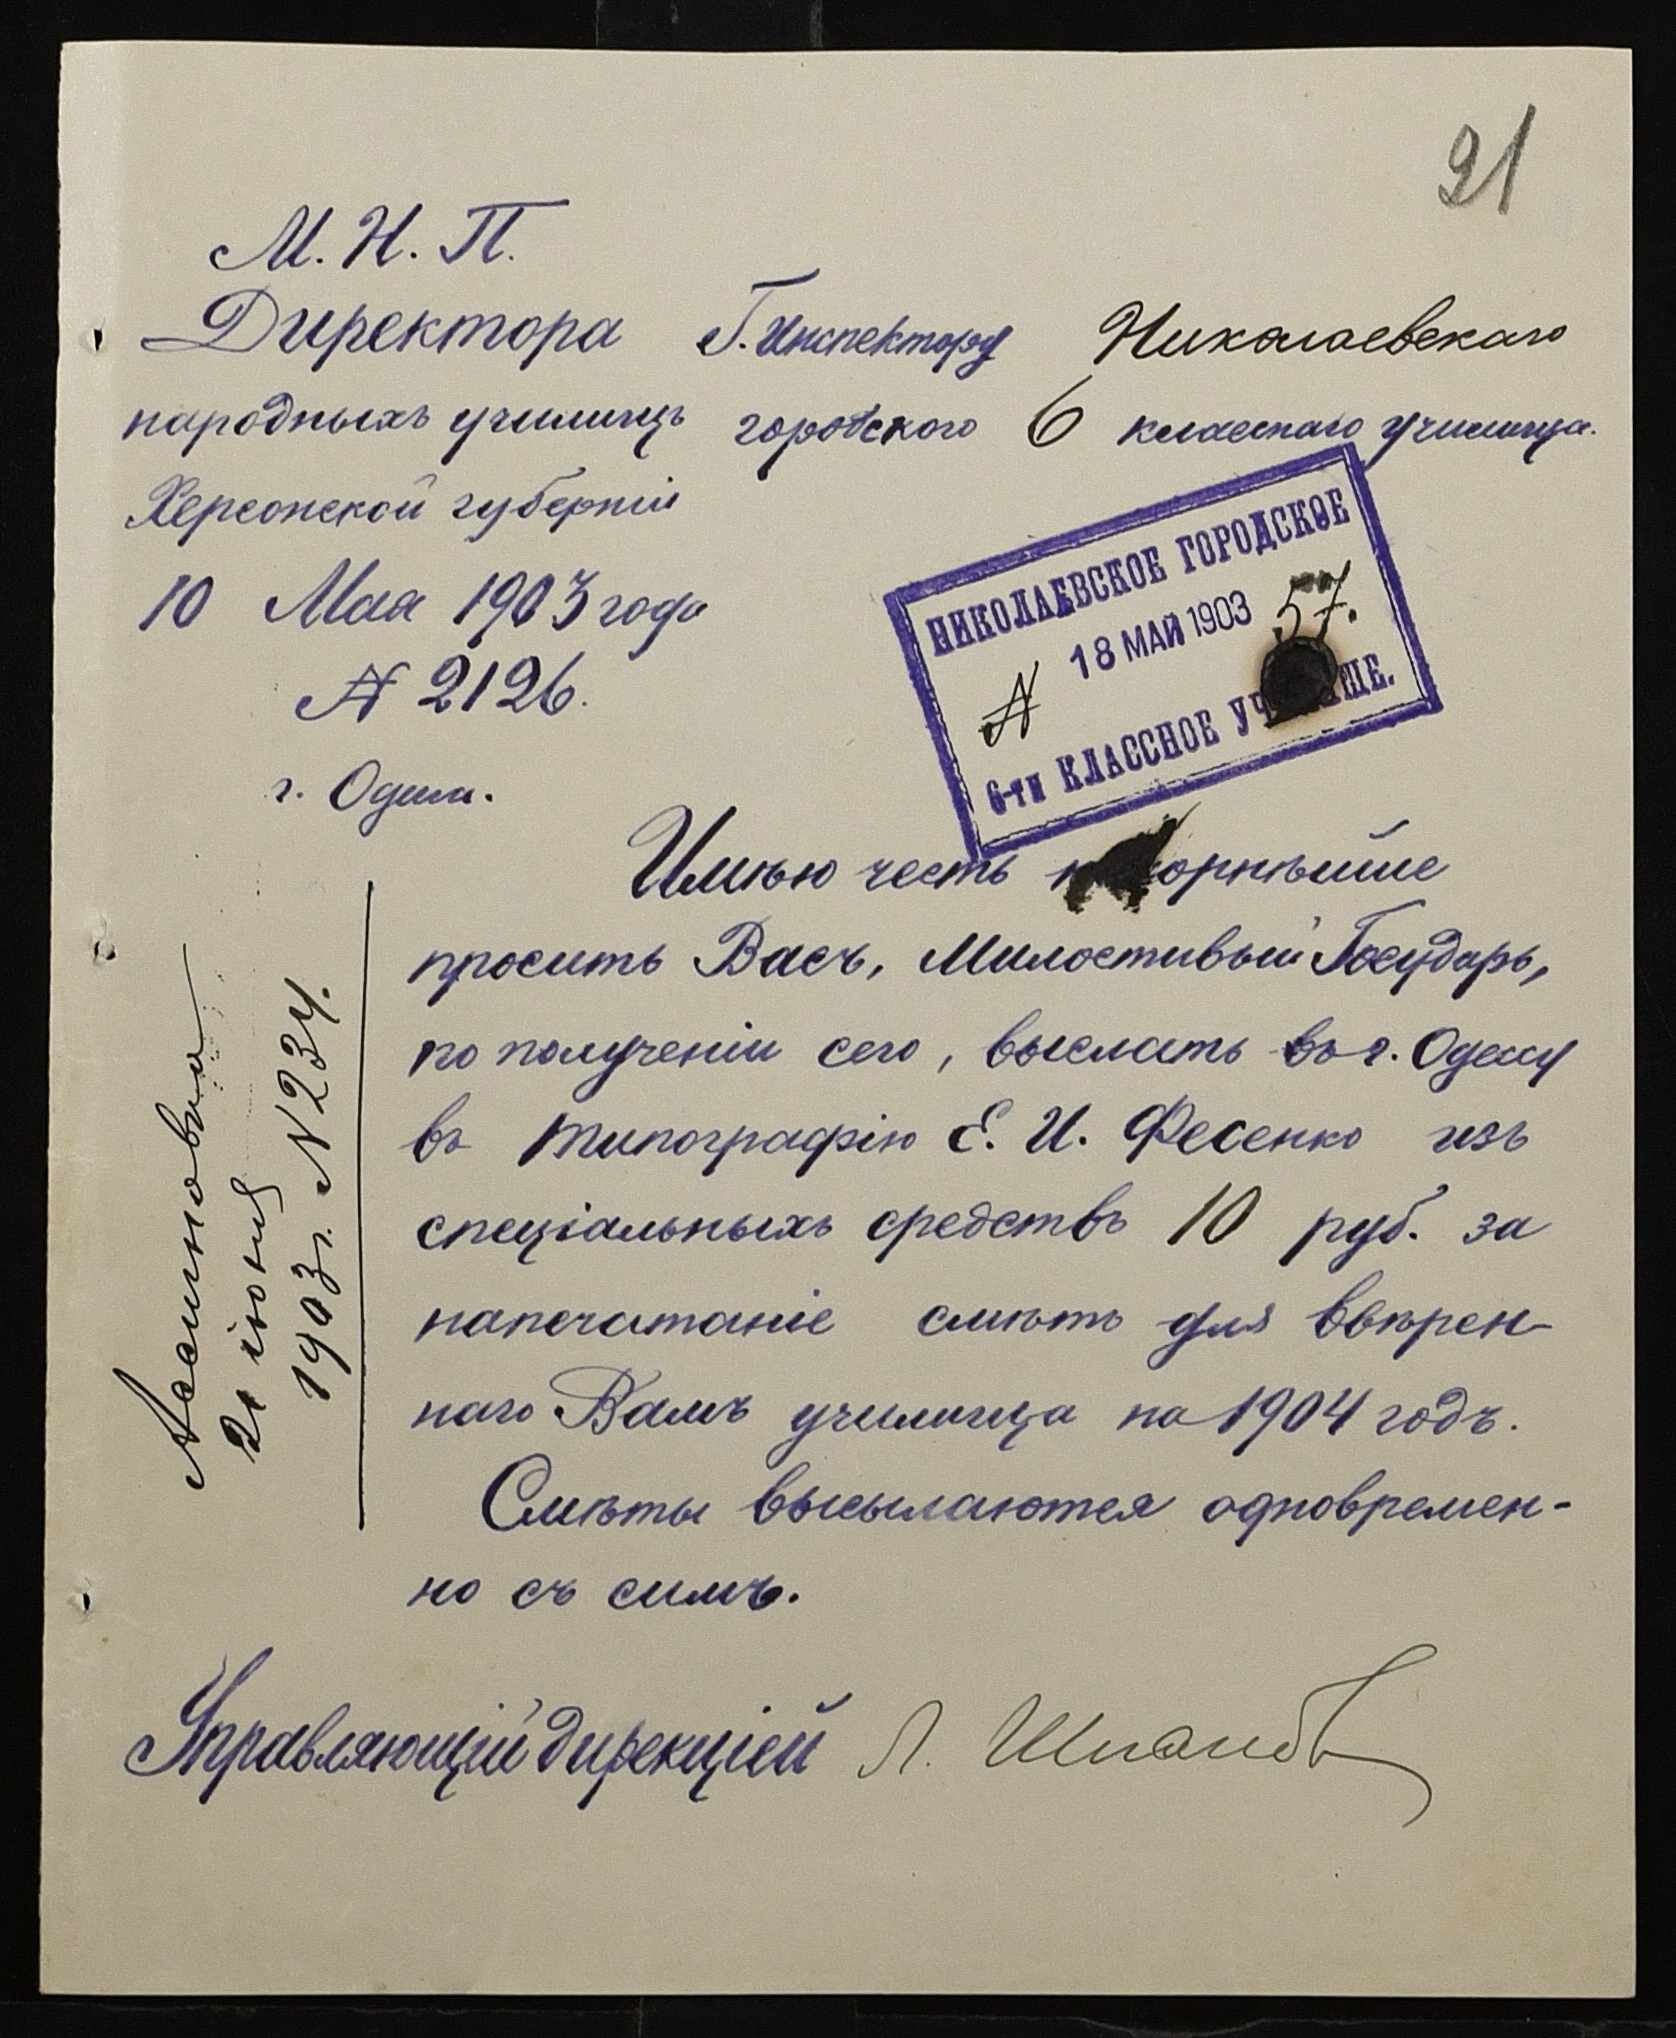 91
М. Н. П.
Директора
народныхъ училищъ
Херсонской губерніи
10 Мая 1903 года
№ 2126.
г. Одесса.
Г. Инспектору Николаевскаго
городского 6 класснаго училища.
НИКОЛАЕВСКОЕ ГОРОДСКОЕ
18 МАЙ 1903
№ 57.
6-ти КЛАССНОЕ УЧ ЩЕ.
Имѣю честь покорнѣйше
просить Васъ, Милостивый Государь,
по полученіи сего, выслать въ г. Одессу
въ типографію Е. И. Фесенко изъ
спеціальныхъ средствъ 10 руб. за
напечатаніе смѣтъ для ввѣрен-
наго Вамъ училища на 1904 годъ.
Смѣты высылаются одновремен-
но съ симъ.
Ассигновано
21 іюня
1903 г. № 234.
Управляющій дирекціей Л.